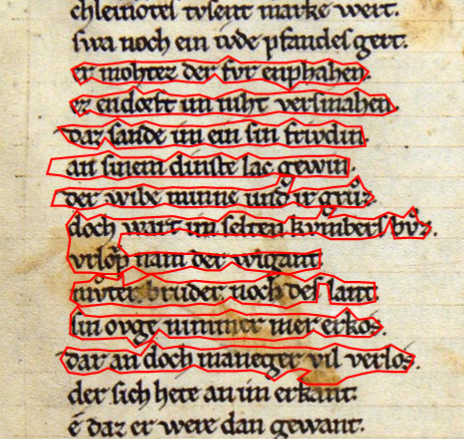 chleinotel tvsent marke wert.
swa noch ein ivde pfandes gert.
er mohtez der fvr enphahen.
ez endorft im niht versmahen.
daz sande im ein sin friwdin.
an sinem dinste lac gewin.
der wibe minne und ir grůz.
doch wart im selten kvmbers bůz.
vrlop nam der wigant.
můter bruder noch des lant.
sin ovge nimmer mer erkos.
dar an doch maneger vil verlos.
der sich hete an im erkant.
ê daz er were dan gewant.